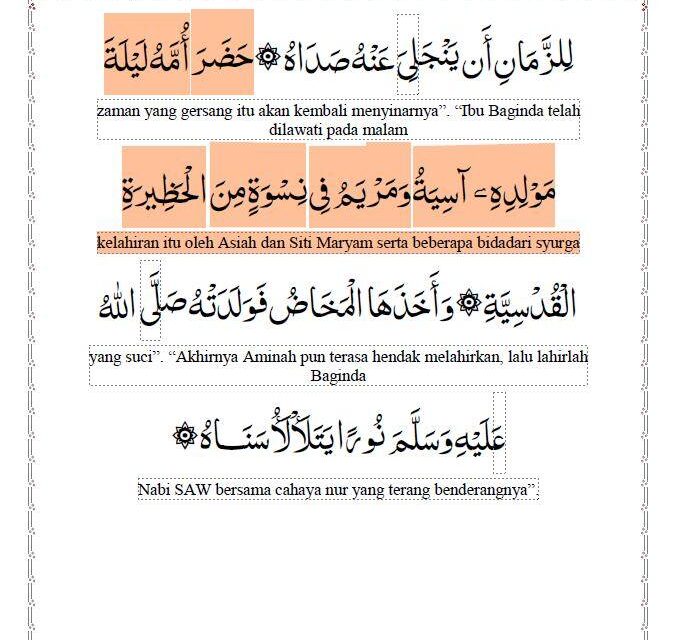 لِلزَّمَانِ أَن يَنْجَلِيَ عَنْهُ صَدَاهُ ۞ حَضَرَ أُمَّهُ لَيْلَةَ
zaman yang gersang itu akan kembali menyinarnya”. “Ibu Baginda telah
dilawati pada malam
مَوْلِدِهِۦ آسِيَةُ وَمَرْيَمُ فِي نِسْوَةٍ مِنَ الْحَظِيرَةِ
kelahiran itu oleh Asiah dan Siti Maryam serta beberapa bidadari syurga
الْقُدْسِيَّةِ ۞ وَأَخَذَهَا الْمَخَاضُ فَوَلَدَتْهُ صَلَّى اللهُ
yang suci”. “Akhirnya Aminah pun terasa hendak melahirkan, lalu lahirlah
Baginda
عَلَيْهِ وَسَلَّمَ نُورًا يَتَلَأْلَأُ سَنَاهُ ۞
Nabi SAW bersama cahaya nur yang terang benderangnya”.